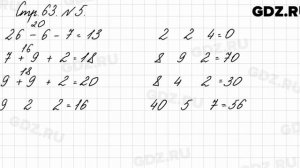 GDZ.RU
Стр. 63. N 5.
20
26 - 6 - 7 = 13
2 2 4 = 0
16
7 + 9 + 2 = 18
8 9 2 = 70
18
9 + 9 + 2 = 20
8 4 2 = 30
9 2 2 = 16
40 5 7 = 56
GDZ.RU